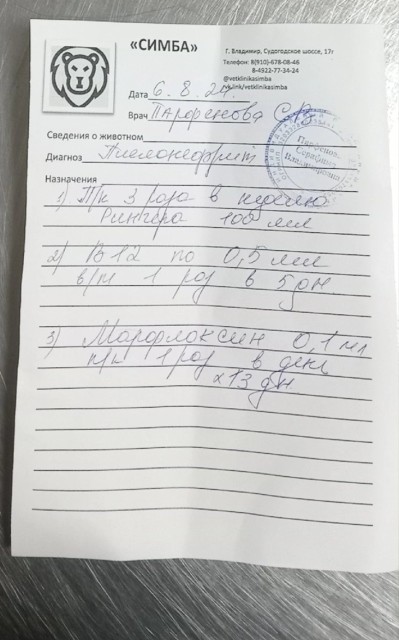 «СИМБА»
Г. Владимир, Судогодское шоссе, 17г
Телефон: 8(910)-678-08-46
8-4922-77-34-24
@vetklinikasimba
vk.link/vetklinikasimba
Дата 6.8.24г.
Врач Парфенова С.В.
Сведения о животном
Диагноз Пиелонефрит
Назначения
1) П/к 3 раза в неделю
Рингера 100 мл
2) В12 по 0,5 мл
в/м 1 раз в 5 дн
3) Марфлоксин 0,1 мл
п/к 1 раз в день
х 13 дн